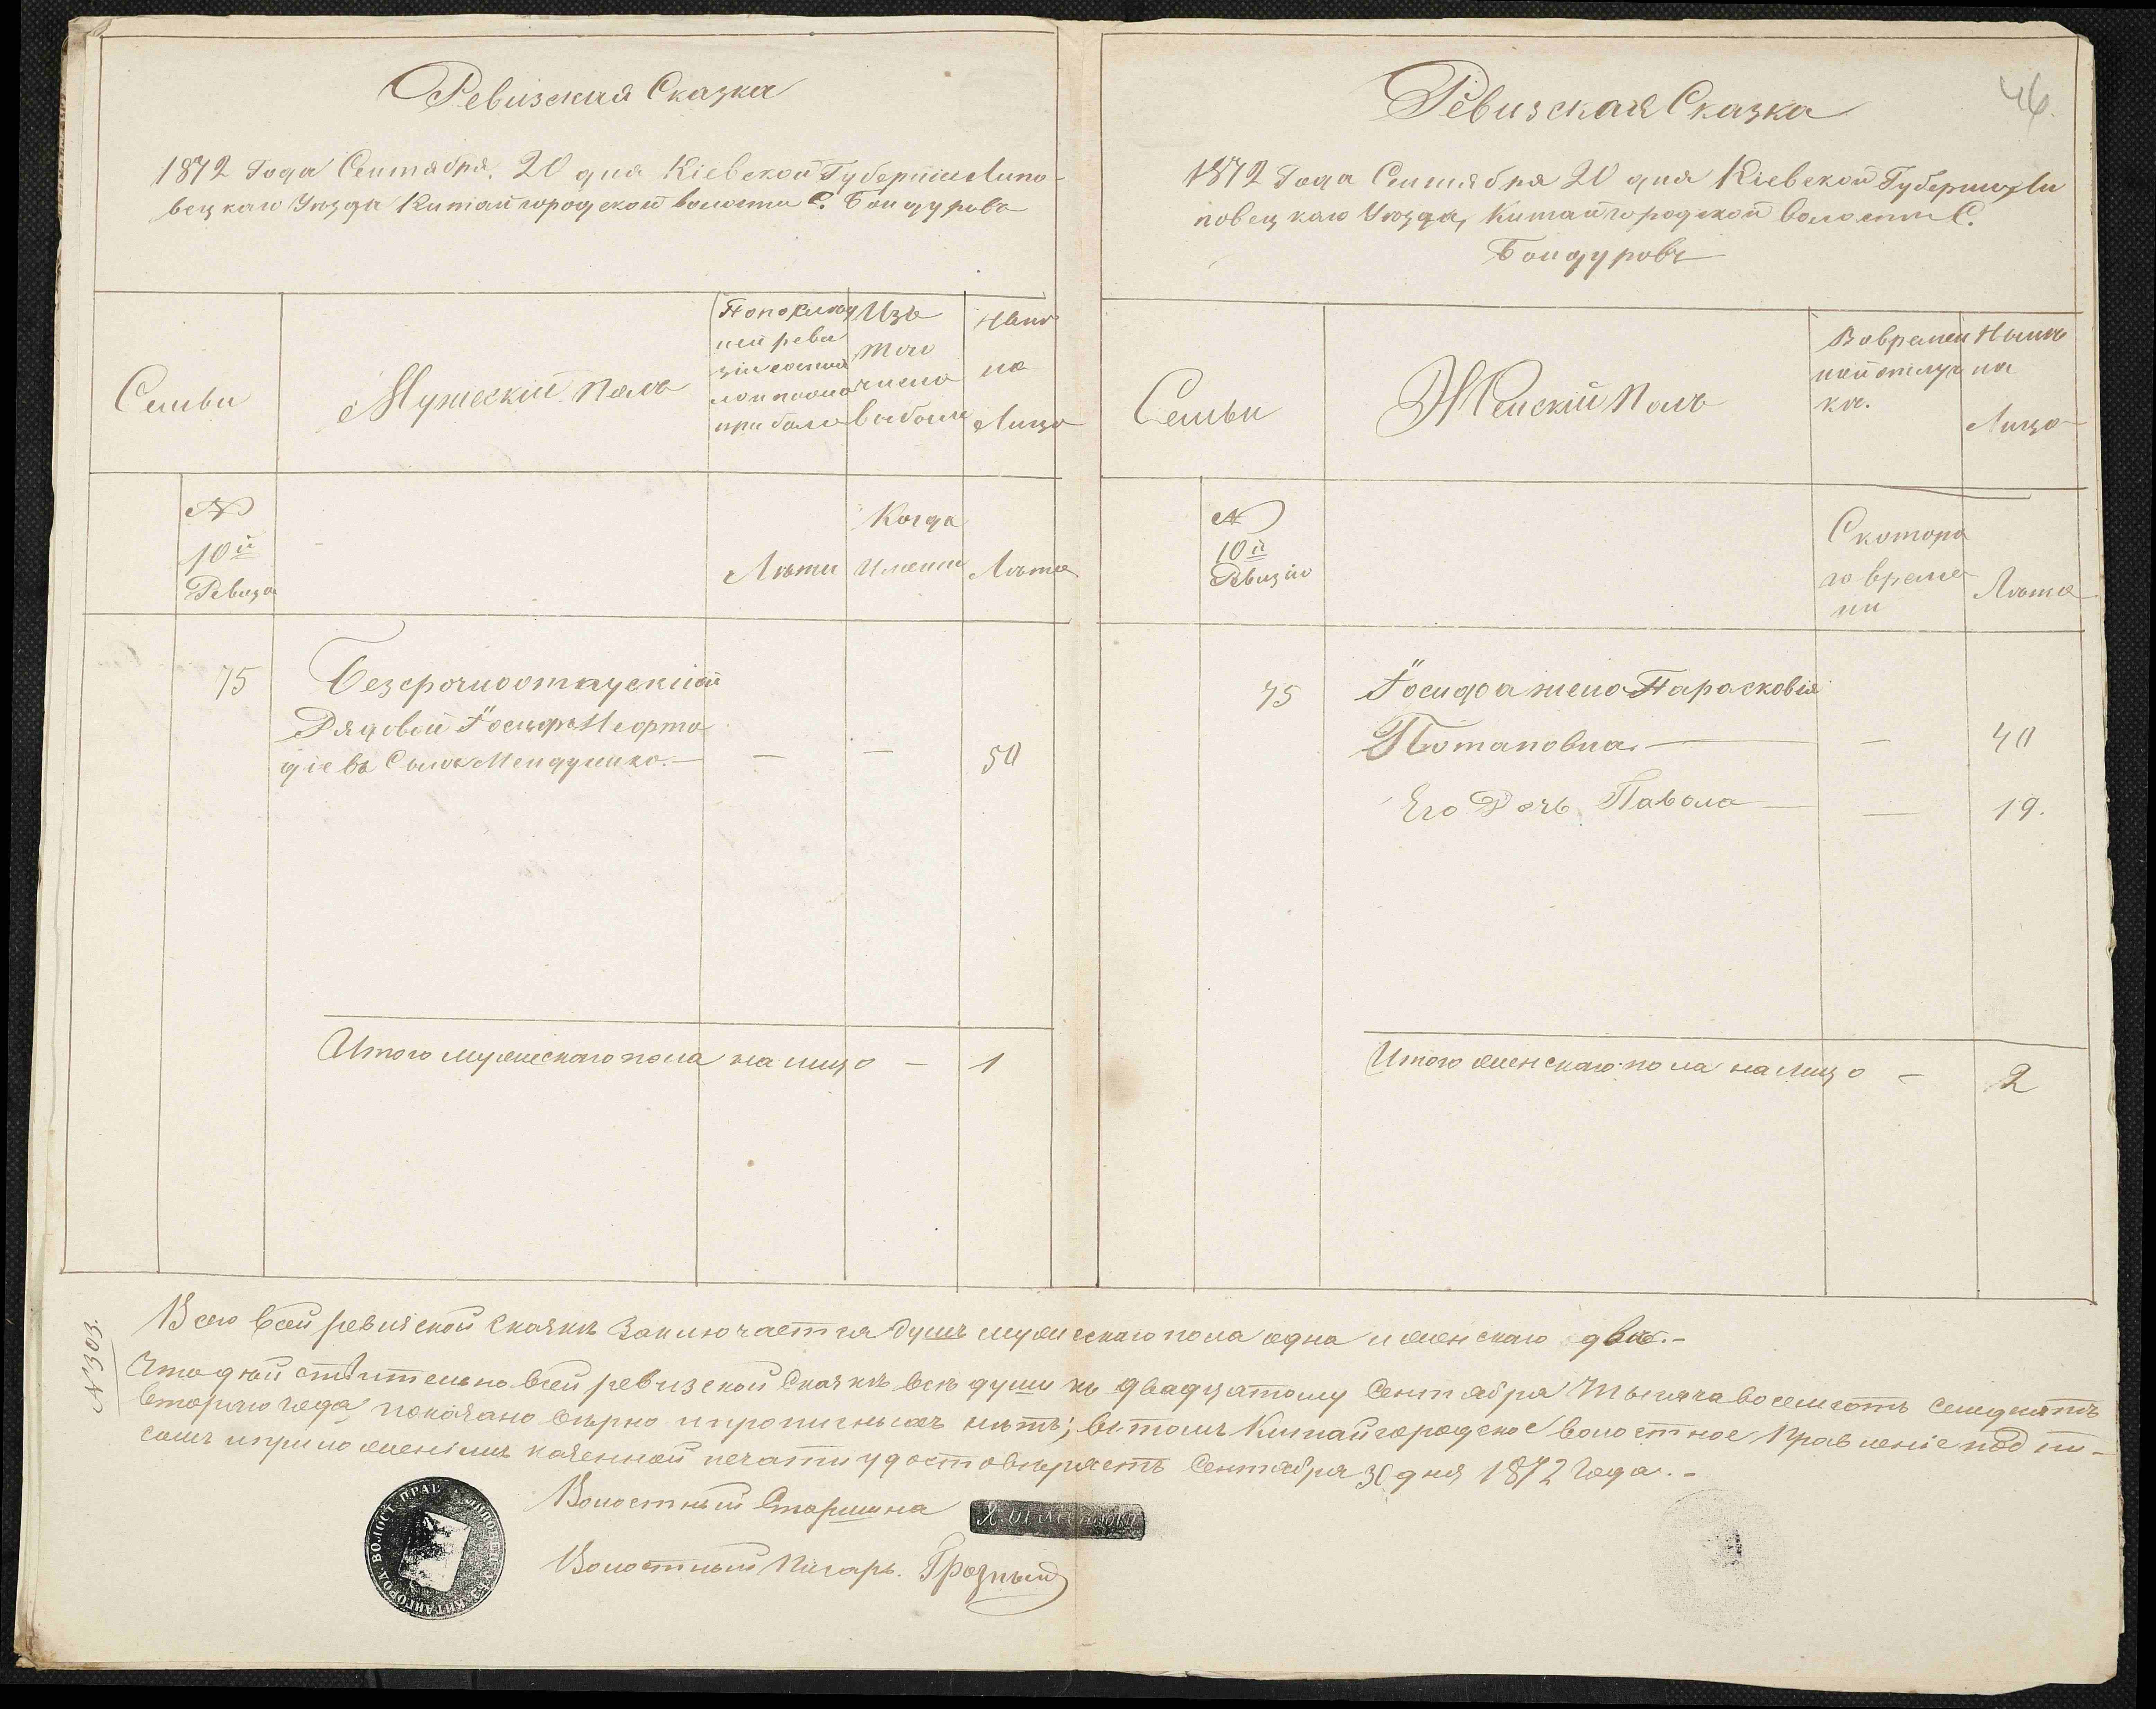 Ревизская Сказка
1872 Года Сентября 20 дня Кіевской Губерніи Липо-
вецкаго Уѣзда Китайгородской волости С. Бондурова
Семьи
Мужескій полъ
По послѣд
ней реви
зіи состоя
ло и после
прибыло
Изъ
того
числа
выбыло
Ныне
на
Лицо
№
10й
Ревизіи
Лѣта
Когда
Именно
Лѣта
75
Безсрочноотпускной
Рядовой Іосифъ
діевъ Сынъ
— — 50
Итого мужескаго пола на лицо — 1
46.
Ревизская Сказка
1872 Года Сентября 20 дня Кіевской Губерніи Ли
повецкаго Уѣзда, Китайгородской волости С.
Бондуровъ
Семьи
Женскій полъ
Во времен
ной отлуч
кѣ.
Нынѣ
на
Лицо
№
10й
Ревизіи
Скотора
го време
ни
Лѣта
75
Іосифа жена Парасковія
Потаповна. — — 40
Его Дочь Павола — — 19.
Итого женскаго пола на лицо — 2
№ 303.
Всего всей ревизской сказкѣ заключается душъ мужескаго пола одна и женскаго двѣ.-
Что дѣйствительно всей ревизской сказкѣ всѣ души къ двадцатому Сентября Тысяча восемсотъ семдесятъ
втораго года, показано вѣрно и прописныхъ нѣтъ; въ томъ Китайгородское волостное Правленіе подпи-
сомъ и приложеніемъ казенной печати удостовѣряетъ Сентября 30 дня 1872 года.-
Волостный Старшина
Волостный Писарь. Грозный
КИТАЙГОРОД ВОЛОСТ ПРАВ